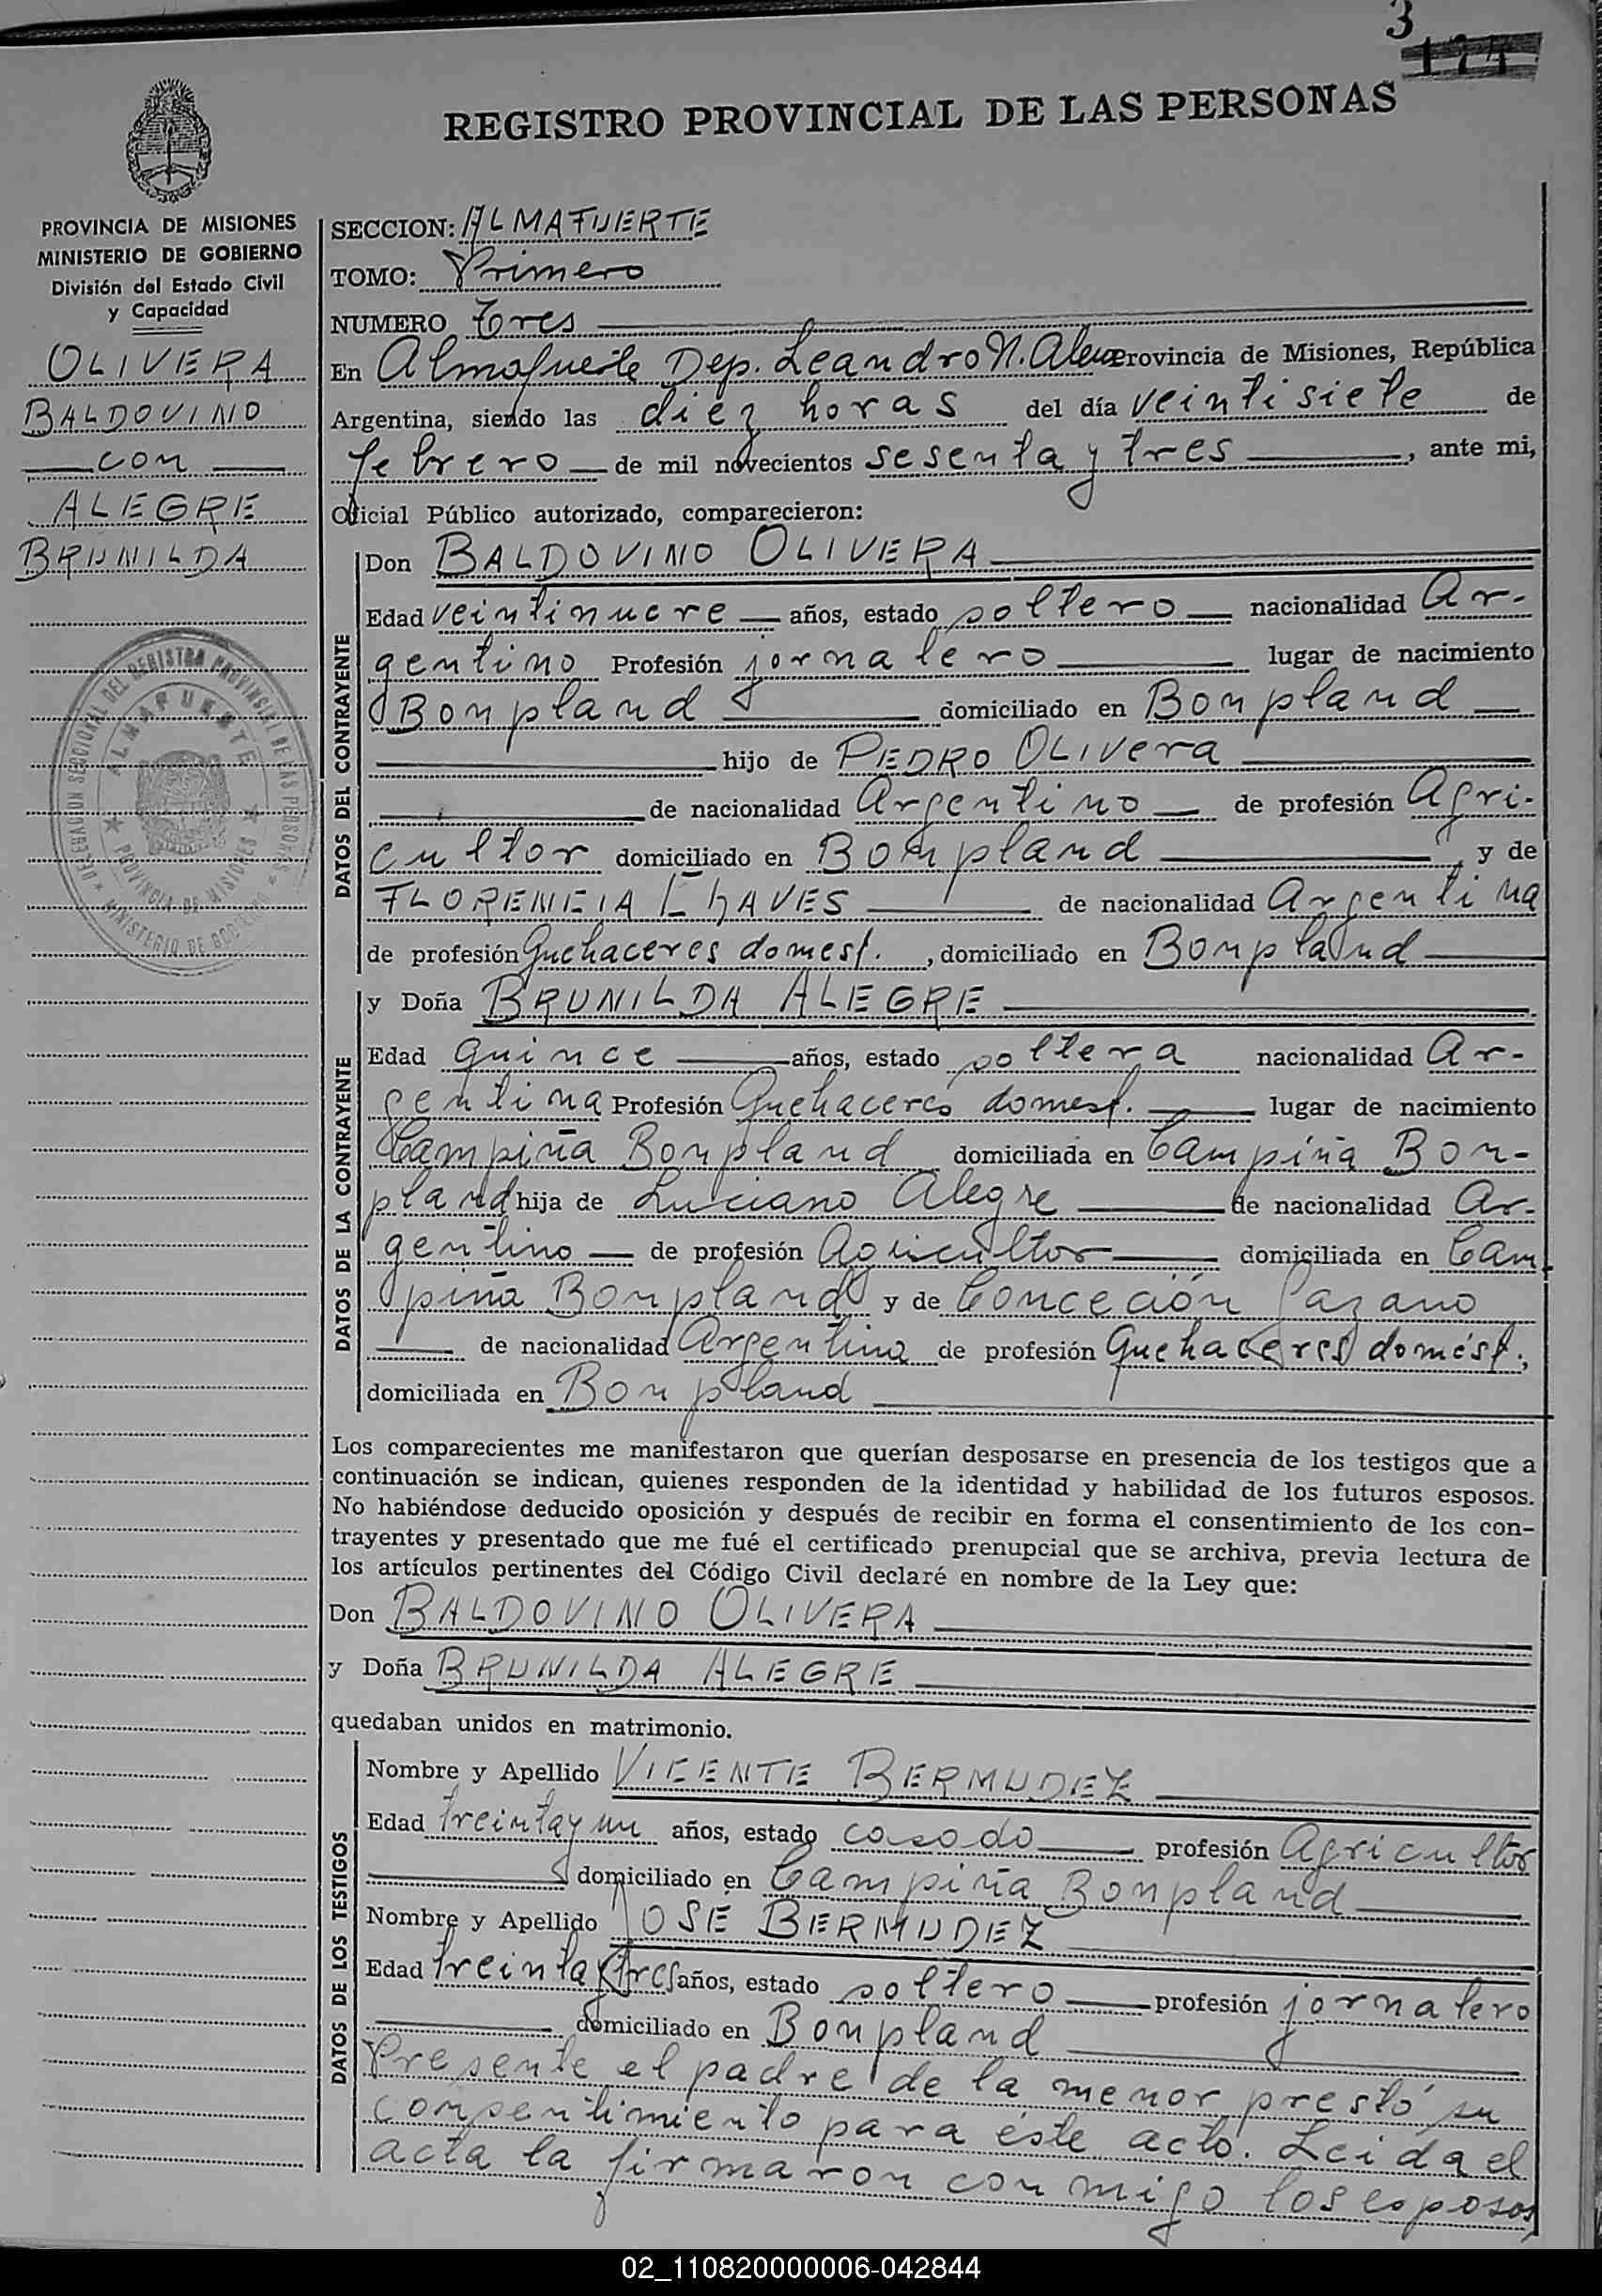 3
174
REGISTRO PROVINCIAL DE LAS PERSONAS
PROVINCIA DE MISIONES
MINISTERIO DE GOBIERNO
División del Estado Civil
y Capacidad
OLIVERA
BALDOVINO
con
ALEGRE
BRUNILDA
DELEGACION SECCIONAL DEL REGISTRO PROVINCIAL DE LAS PERSONAS
ALMAFUERTE
PROVINCIA DE MISIONES
MINISTERIO DE GOBIERNO
SECCION: ALMAFUERTE
TOMO: Primero
NUMERO Tres
En Almafuerte Dep. Leandro N. Alem Provincia de Misiones, República
Argentina, siendo las diez horas del día veintisiete de
febrero de mil novecientos sesenta y tres, ante mi,
Oficial Público autorizado, comparecieron:
DATOS DEL CONTRAYENTE
Don BALDOVINO OLIVERA
Edad veintinueve años, estado soltero nacionalidad Ar-
gentino Profesión jornalero lugar de nacimiento
Bonpland domiciliado en Bonpland
hijo de PEDRO OLIVera
de nacionalidad Argentino de profesión Agri-
cultor domiciliado en Bonpland, y de
FLORENCIA ChAVES de nacionalidad Argentina
de profesión Quehaceres domest., domiciliado en Bonpland
DATOS DE LA CONTRAYENTE
y Doña BRUNILDA ALEGRE
Edad quince años, estado soltera nacionalidad Ar-
gentina Profesión Quehaceres domest. lugar de nacimiento
Campiña Bonpland domiciliada en Campiña Bon-
pland hija de Luciano Alegre de nacionalidad Ar-
gentino de profesión Agricultor domiciliada en Cam
piña Bonpland y de Conceción Lazano
de nacionalidad Argentina de profesión Quehaceres domést.,
domiciliada en Bonpland
Los comparecientes me manifestaron que querían desposarse en presencia de los testigos que a
continuación se indican, quienes responden de la identidad y habilidad de los futuros esposos.
No habiéndose deducido oposición y después de recibir en forma el consentimiento de los con-
trayentes y presentado que me fué el certificado prenupcial que se archiva, previa lectura de
los artículos pertinentes del Código Civil declaré en nombre de la Ley que:
Don BALDOVINO OLIVERA
y Doña BRUNILDA ALEGRE
quedaban unidos en matrimonio.
DATOS DE LOS TESTIGOS
Nombre y Apellido VICENTE BERMUDEZ
Edad treinta y un años, estado casado profesión Agricultor
domiciliado en Campiña Bonpland
Nombre y Apellido JOSE BERMUDEZ
Edad treinta y tres años, estado soltero profesión jornalero
domiciliado en Bonpland
Presente el padre de la menor prestó su
consentimiento para éste acto. Leída el
acta la firmaron conmigo los esposos
02_110820000006-042844